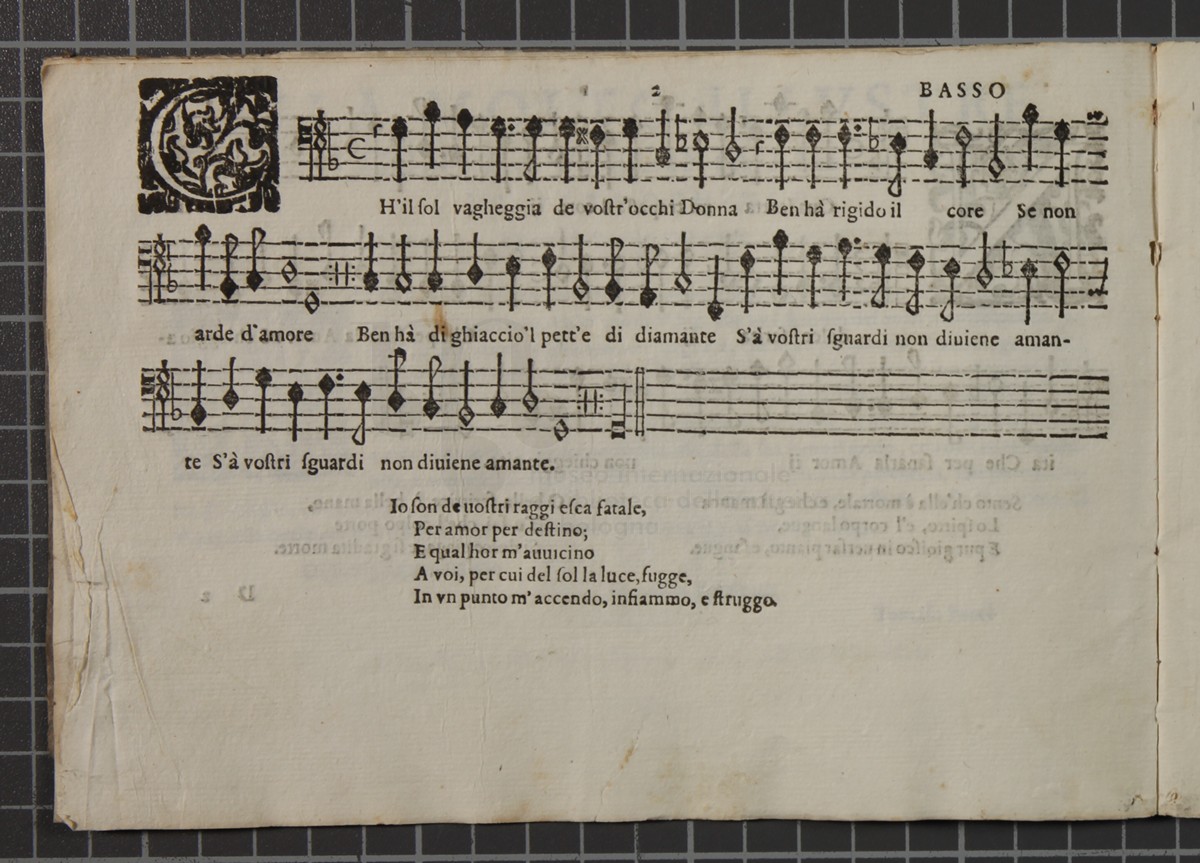 2 BASSO
CH'il sol vagheggia de vostr'occhi Donna Ben hà rigido il core Se non
arde d'amore Ben hà di ghiaccio'l pett'e di diamante S'à vostri sguardi non diuiene aman-
te S'à vostri sguardi non diuiene amante.
Io son de uostri raggi esca fatale,
Per amor per destino;
E qual hor m'auuicino
A voi, per cui del sol la luce, fugge,
In vn punto m'accendo, infiammo, e struggo.